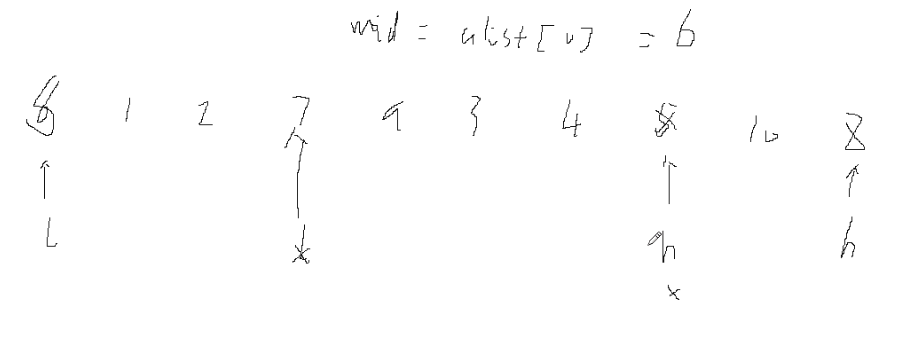 mid = alist[0] = 6
1 2 7 9 3 4 10 8
L h